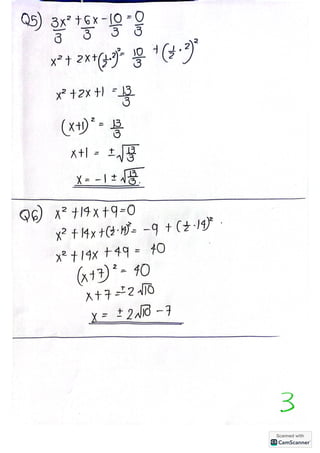 Q5) 3x² + 6x - 10 = 0
3 3 3 3
x² + 2x + (½·2)² = 10/3 + (½·2)²
x² + 2x + 1 = 13/3
(x+1)² = 13/3
x+1 = ±√13/3
x = -1 ± √13/3
Q6) x² + 14x + 9 = 0
x² + 14x + (½·14)² = -9 + (½·14)²
x² + 14x + 49 = 40
(x+7)² = 40
x+7 = ±2√10
x = ±2√10 - 7
3
Scanned with
CS CamScanner